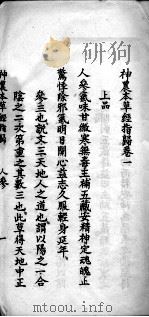 神農本草經指歸卷一
上品
人參氣味甘微寒無毒主補五臟安精神定魂魄止
驚悸除邪氣明目開心益志久服輕身延年
參三也說文三天地人之道也謂以陽之一合
陰之二次第重之其數三也此草得天地中正
神農本草經指歸
人參
一
mtoou.info